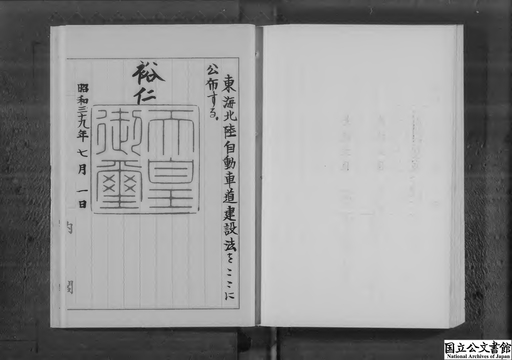 東海北陸自動車道建設法をここに
公布する。
裕仁
天皇
御璽
昭和三十九年七月一日
内閣
国立公文書館
National Archives of Japan